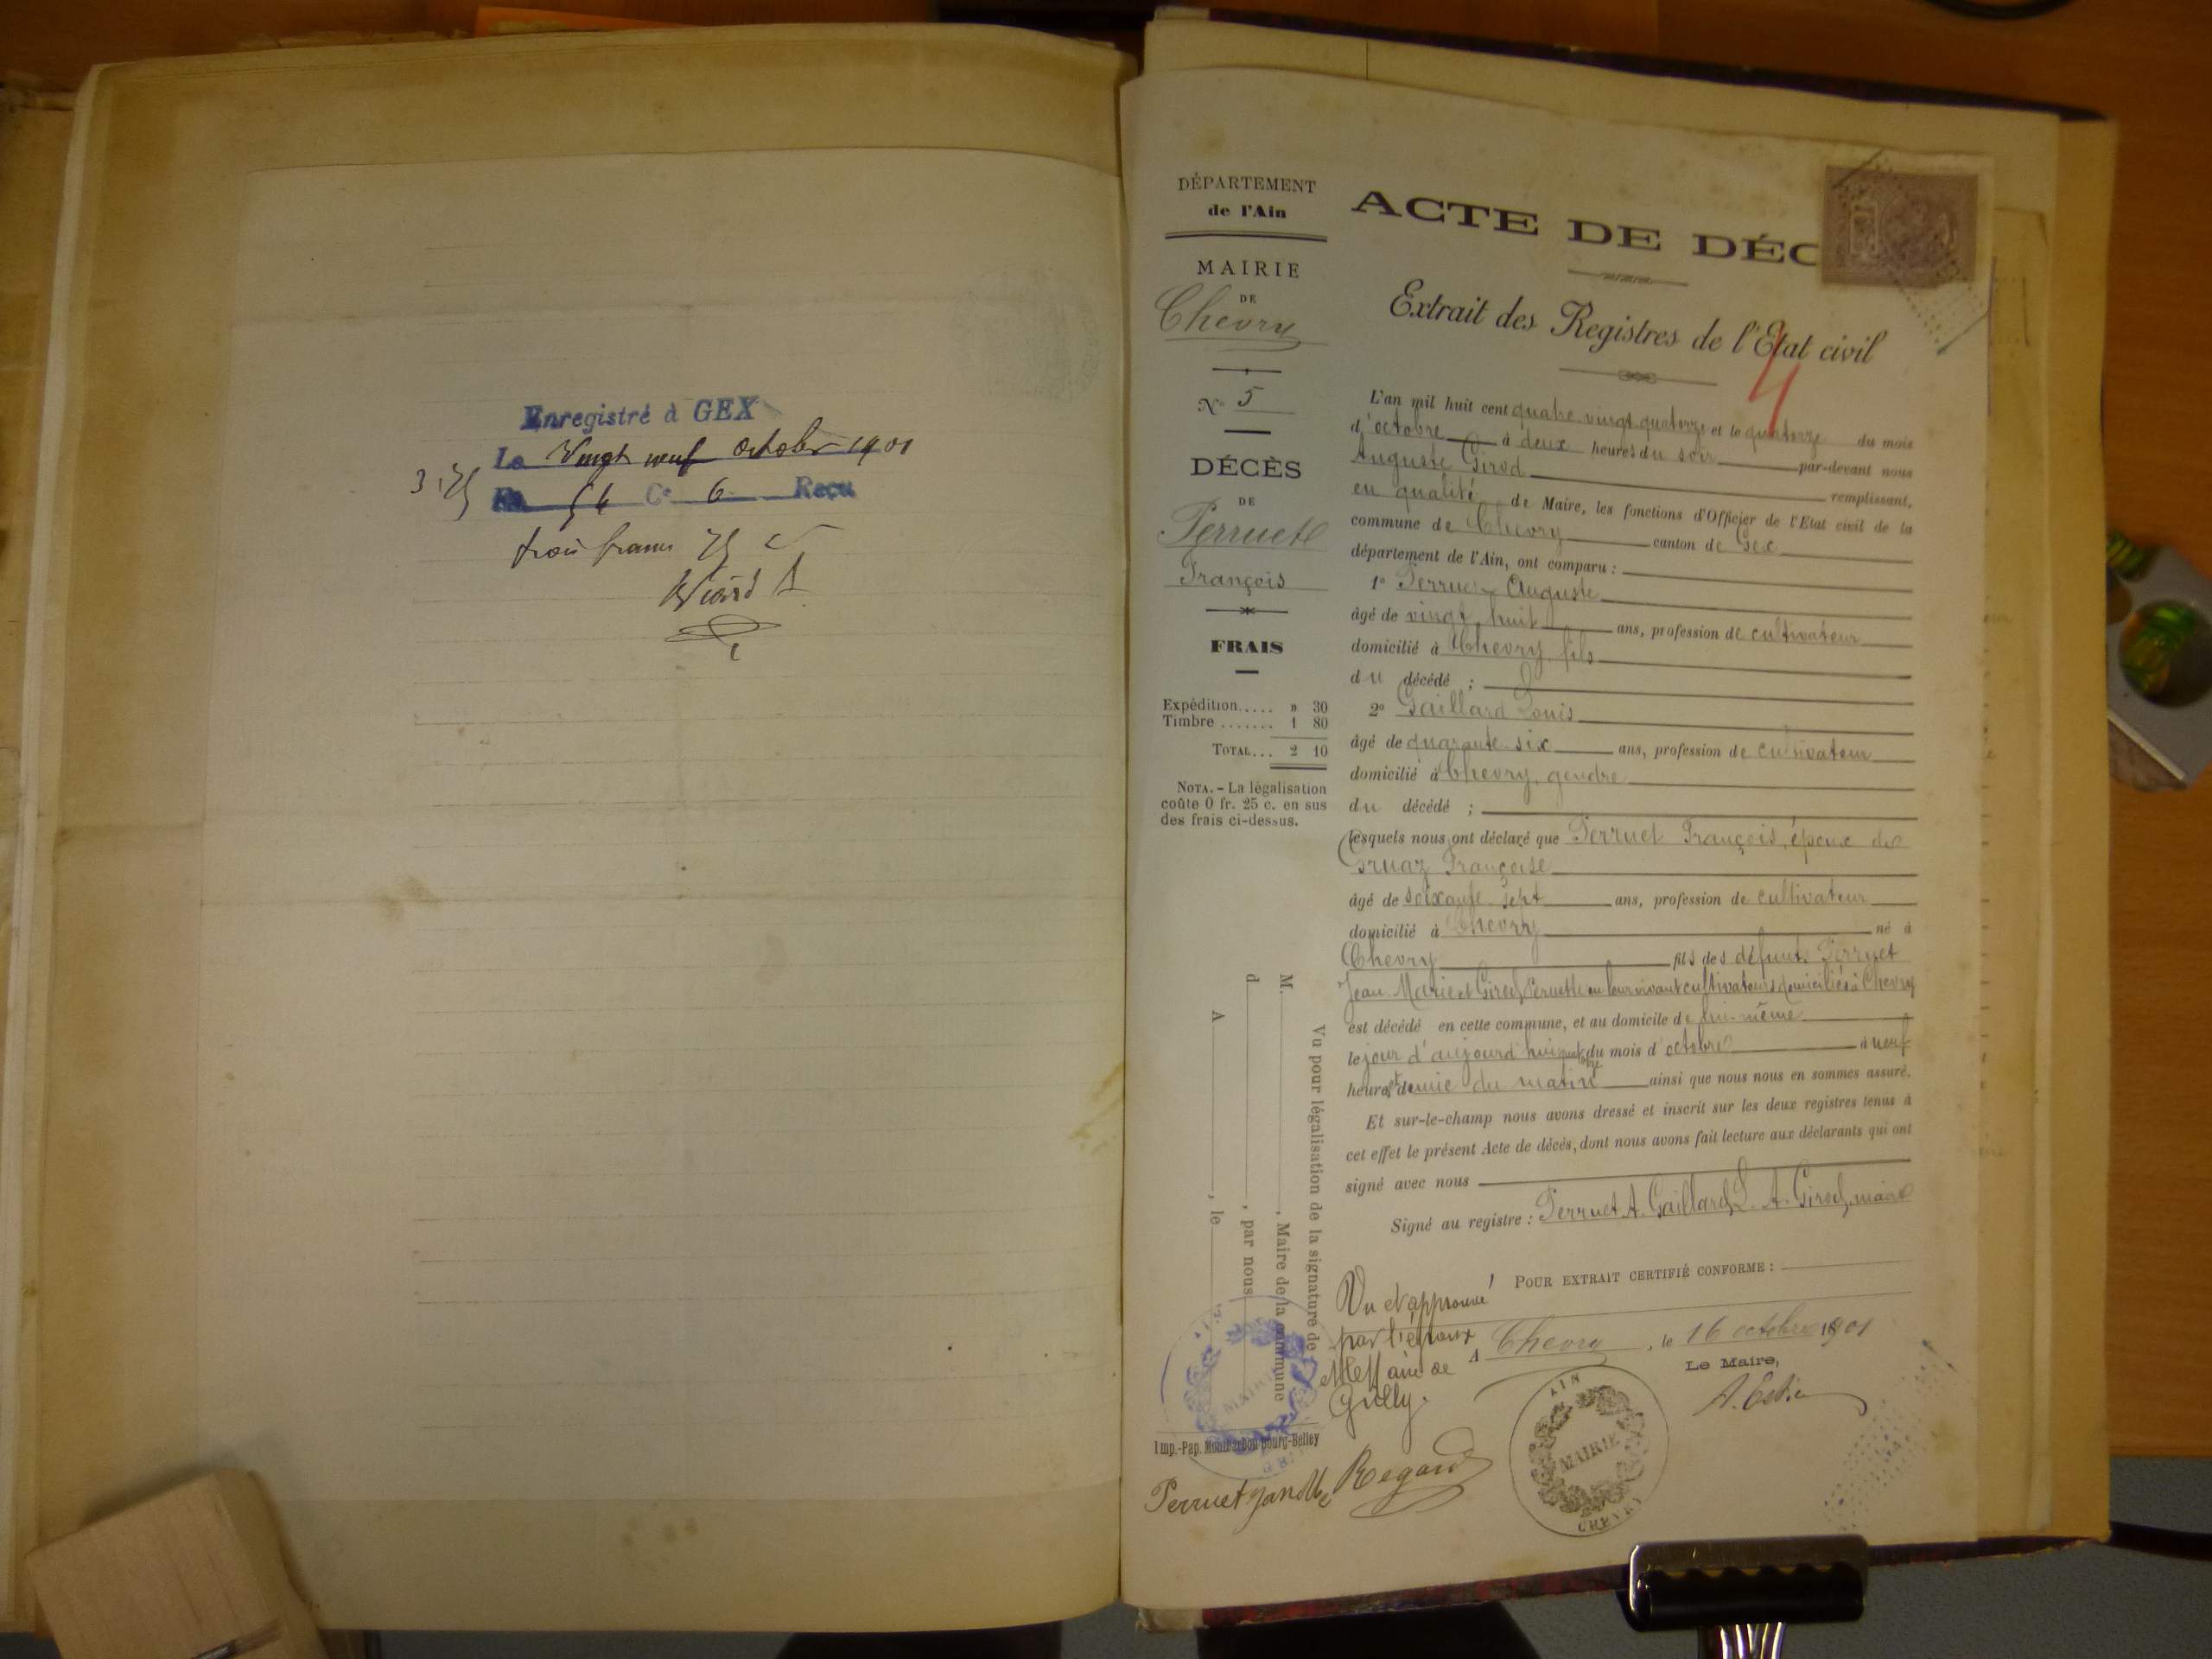 Enregistré à GEX
Le Vingt neuf octobre 1901
3.75
Fo 54 Ce 6 Reçu
trois francs 75 c
DÉPARTEMENT
de l'Ain
MAIRIE
DE
Chevry
No 5
DÉCÈS
DE
Perruet
François
FRAIS
Expédition..... » 30
Timbre ....... 1 80
TOTAL... 2 10
NOTA. - La légalisation
coûte 0 fr. 25 c. en sus
des frais ci-dessus.
Vu pour légalisation de la signature de
M. , Maire de la commune
d , par nous
A , le
Imp.-Pap. Bourg-Belley
ACTE DE DÉC
Extrait des Registres de l'Etat civil
4
L'an mil huit cent quatre vingt quatorze et le quatorze du mois
d'octobre à deux heures du soir par-devant nous
Auguste Girod remplissant,
en qualité de Maire, les fonctions d'Officier de l'Etat civil de la
commune de Chevry canton de Gex
département de l'Ain, ont comparu :
1o Perruet Auguste
âgé de vingt huit ans, profession de cultivateur
domicilié à Chevry, fils
du décédé ;
2o Gaillard Louis
âgé de quarante six ans, profession de cultivateur
domicilié à Chevry, gendre
du décédé ;
Lesquels nous ont déclaré que Perruet François, époux de
Gruaz Françoise
âgé de soixante sept ans, profession de cultivateur
domicilié à Chevry né à
Chevry fils des défunts Perruet
Jean Marie et Girod Pernette en leur vivant cultivateurs domiciliés à Chevry
est décédé en cette commune, et au domicile de lui-même
le jour d'aujourd'hui quatorze du mois d'octobre à neuf
heures et demie du matin ainsi que nous nous en sommes assuré.
Et sur-le-champ nous avons dressé et inscrit sur les deux registres tenus à
cet effet le présent Acte de décès, dont nous avons fait lecture aux déclarants qui ont
signé avec nous
Signé au registre : Perruet A. Gaillard L. A. Girod, maire
POUR EXTRAIT CERTIFIÉ CONFORME :
A Chevry, le 16 octobre 1901
Le Maire,
Vu et approuvé
par l'époux
de
Gilly.
Regard
Perruet
AIN
MAIRIE
CHEVRY
MAIRIE